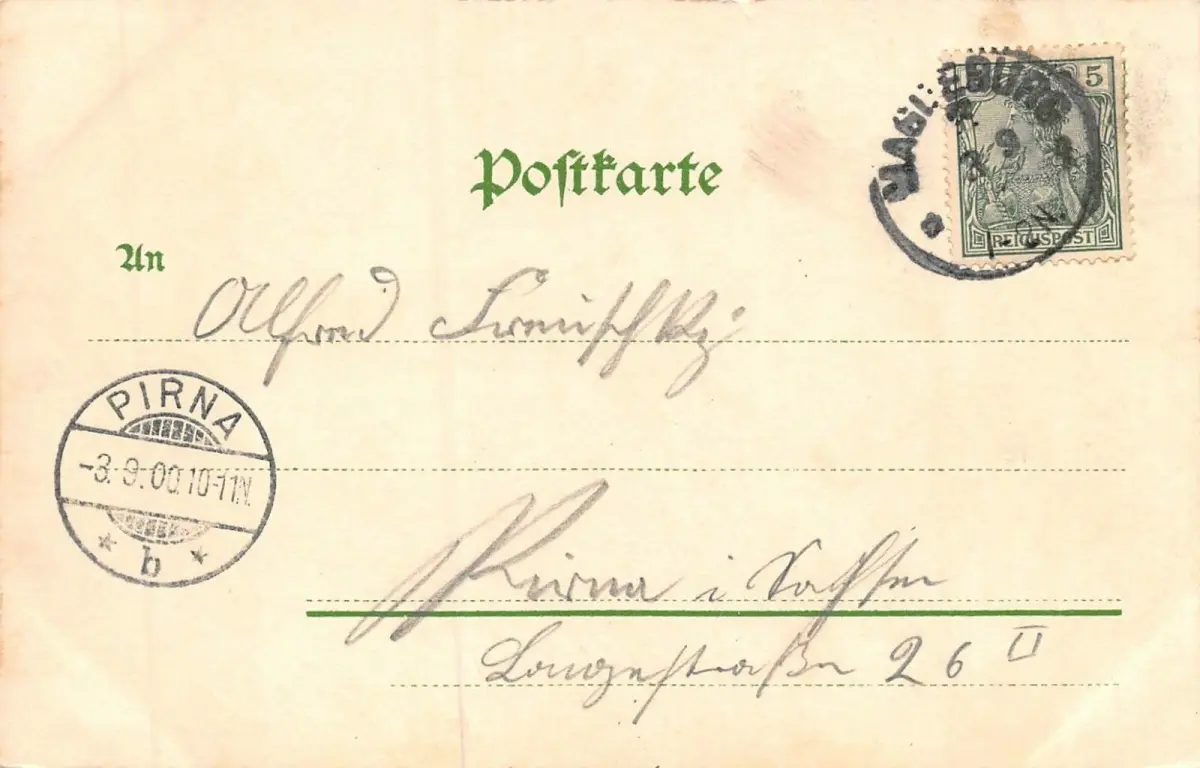 5
MAGDEBURG
3. 9.
1-2N.
REICHSPOST
Postkarte
An
Alfred
PIRNA
-3.9.00.10-11N.
b
Pirna i Sachsen
Langestraße 26 II